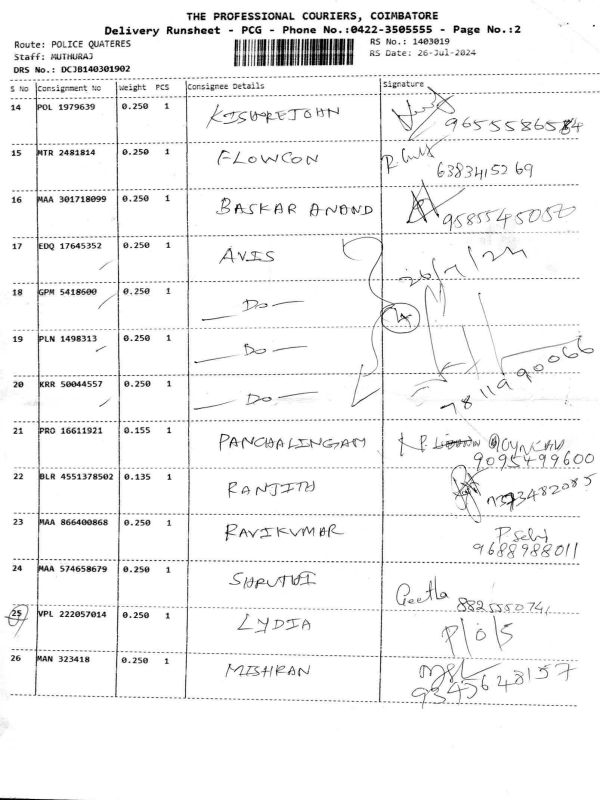 THE PROFESSIONAL COURIERS, COIMBATORE
Delivery Runsheet - PCG - Phone No.:0422-3505555 - Page No.:2
Route: POLICE QUATERES RS No.: 1403019
Staff: MUTHURAJ RS Date: 26-Jul-2024
DRS No.: DCJB140301902
S No Consignment No Weight PCS Consignee Details Signature
14 POL 1979639 0.250 1 KISHORE JOHN
15 MTR 2481814 0.250 1 FLOWCON 6383415269
16 MAA 301718099 0.250 1 BASKAR ANAND 9585545050
17 EDQ 17645352 0.250 1 AVIS 26/7/24
18 GPM 5418600 0.250 1 — Do — 4
19 PLN 1498313 0.250 1 — Do —
20 KRR 50044557 0.250 1 — Do — 7811990066
21 PRO 16611921 0.155 1 PANCHALINGAM 9095499600
22 BLR 4551378502 0.135 1 RANJITH
23 MAA 866400868 0.250 1 RAVIKUMAR 9688988011
24 MAA 574658679 0.250 1 SHRUTHI Geetha 882555074,
25 VPL 222057014 0.250 1 LYDIA P/O/S
26 MAN 323418 0.250 1 MISHRAN 9345648157